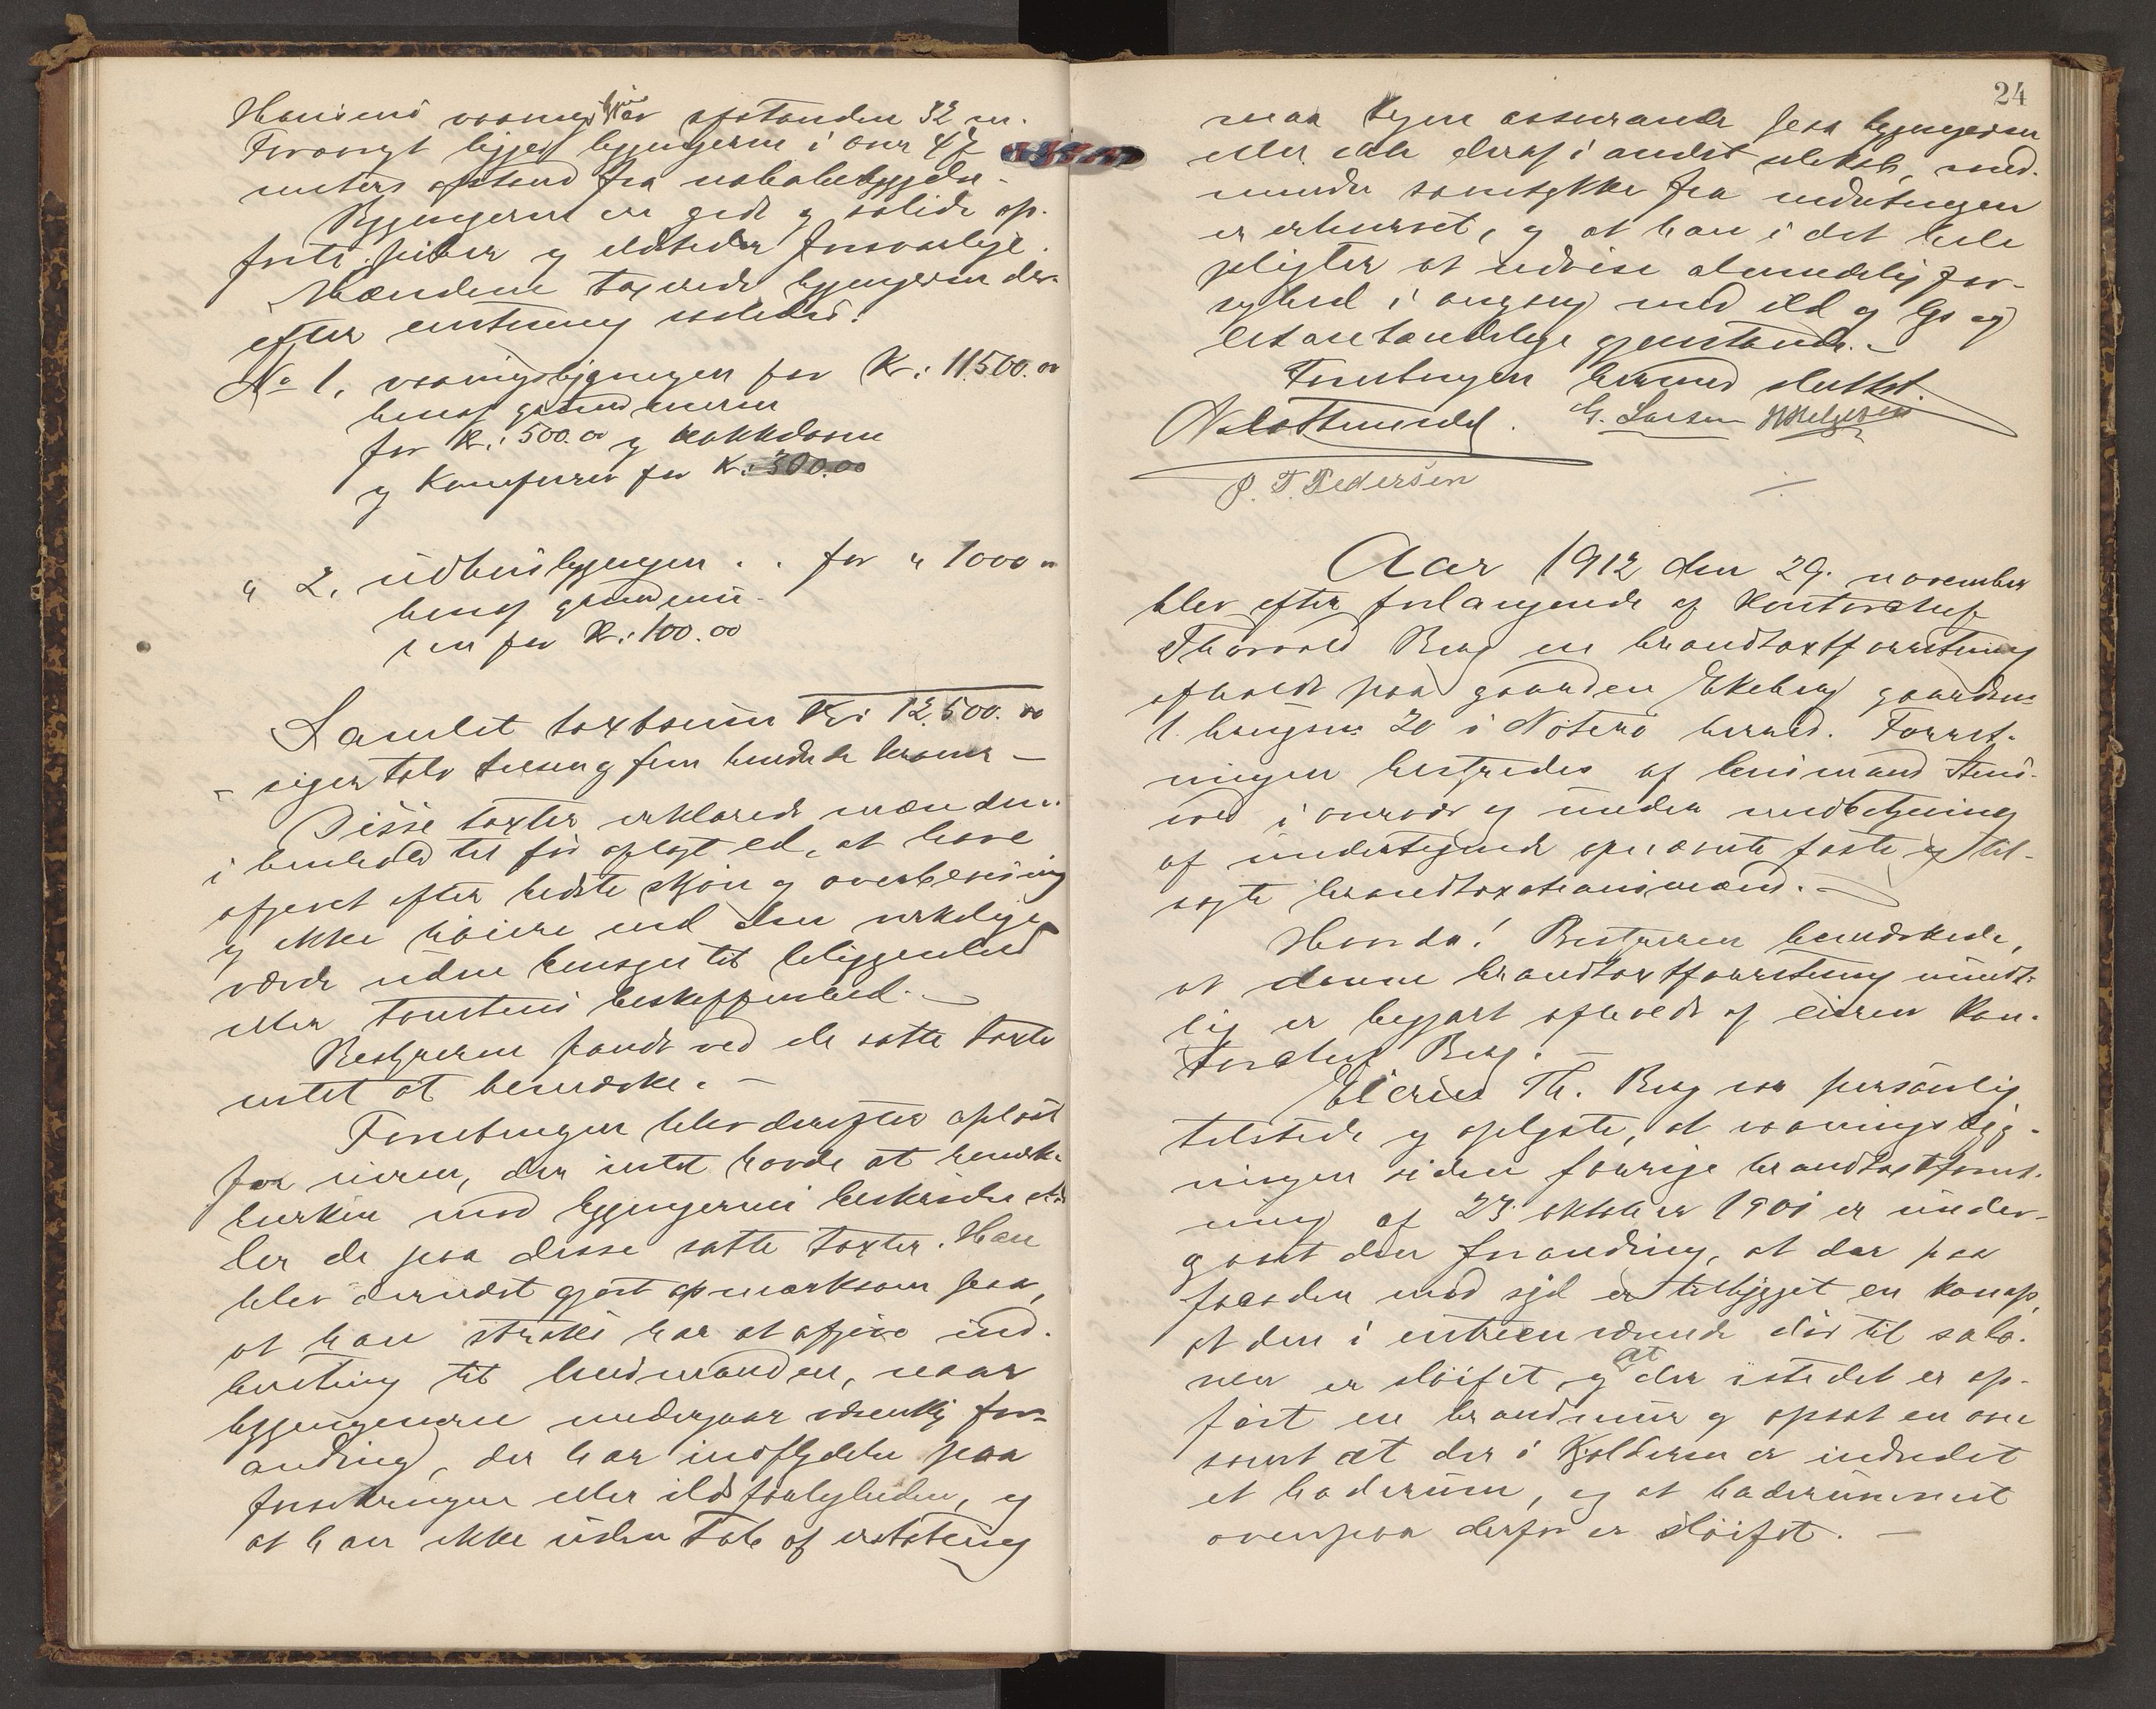 Hansens vaaningshus er afstanden 32 m.
Forøvrigt ligger bygningerne i over 47
meters afstand fra nabobebyggelse.
Bygningerne er gode og solide op-
førte. Piber og ildsteder forsvarlige.
Mændene taxerede bygningerne der-
efter enstemmig saaledes:
No 1, vaaningsbygningen for Kr: 11500.00
heraf grundmuren
for Kr: 500.00 og kakkelovne
og komfurer for Kr: 300.00
" 2, udhusbygningen . . for " 1000 "
heraf grundmu-
ren for Kr: 100.00
Samlet taxtsum Kr: 12,500.00
- siger tolv tusen og fem hundrede kroner -
Disse taxter erklærede mændene
i henhold til før aflagt ed, at have
afgivet efter bedste skjøn og overbevisning
og ikke høiere end den virkelige
værdi uden hensyn til beliggenhed
eller tomtens beskaffenhed. -
Bestyreren fandt ved de satte taxter
intet at bemærke. -
Forretningen blev derefter oplæst
for eieren, der intet havde at bemærke
hverken mod bygningernes beskrivelse el-
ler de paa disse satte taxter. Han
blev dernæst gjort opmærksom paa,
at han straks har at afgive ind-
beretning til lensmanden, naar
bygningerne undergaar væsentlig for-
andring, der har indflydelse paa
forsikringen eller ildsfarligheden, og
at han ikke uden Tab af erstatning
24
maa tegne assurance paa bygningerne
eller dele deraf i andet selskab, med-
mindre samtykke fra indretningen
er erhvervet, og at han i det hele
pligter at udvise almindelig for-
sighed i omgang med ild og lys og
letantændelige gjenstande. -
Forretningen hermed sluttet.
G. Larsen
P. T. Pedersen
Aar 1912 den 29. november
blev efter forlangende af Kontorchef
Thorvald Berg en brandtaxtforretning
afholdt paa gaarden Ekeberg gaardsn:
1. brugsn: 20 i Nøterø herred. Forret-
ningen bestyredes af lensmand
i overvær og under medbetjening
af undertegnede opnævnte faste og til-
sagte brandtaxationsmænd. -
Hvorda! Bestyreren bemærkede,
at denne brandtaxtforretning mundt-
lig er begjært afholdt af eieren Kon-
torchef Berg. -
Eieren Th. Berg var personlig
tilstede og oplyste, at vaaningsbyg-
ningen siden forrige brandtaxtforret-
ning af 23 oktober 1901 er under-
gaaet den forandring, at der paa
facaden mod syd er tilbygget en karnap,
at den i entreen værende dør til salo-
nen er sløifet og at der istedet er op-
ført en brandmur og opsat en ovn
samt at der i Kjælderen er indredet
et baderum, og at baderummet
ovenpaa derfor er sløifet. -